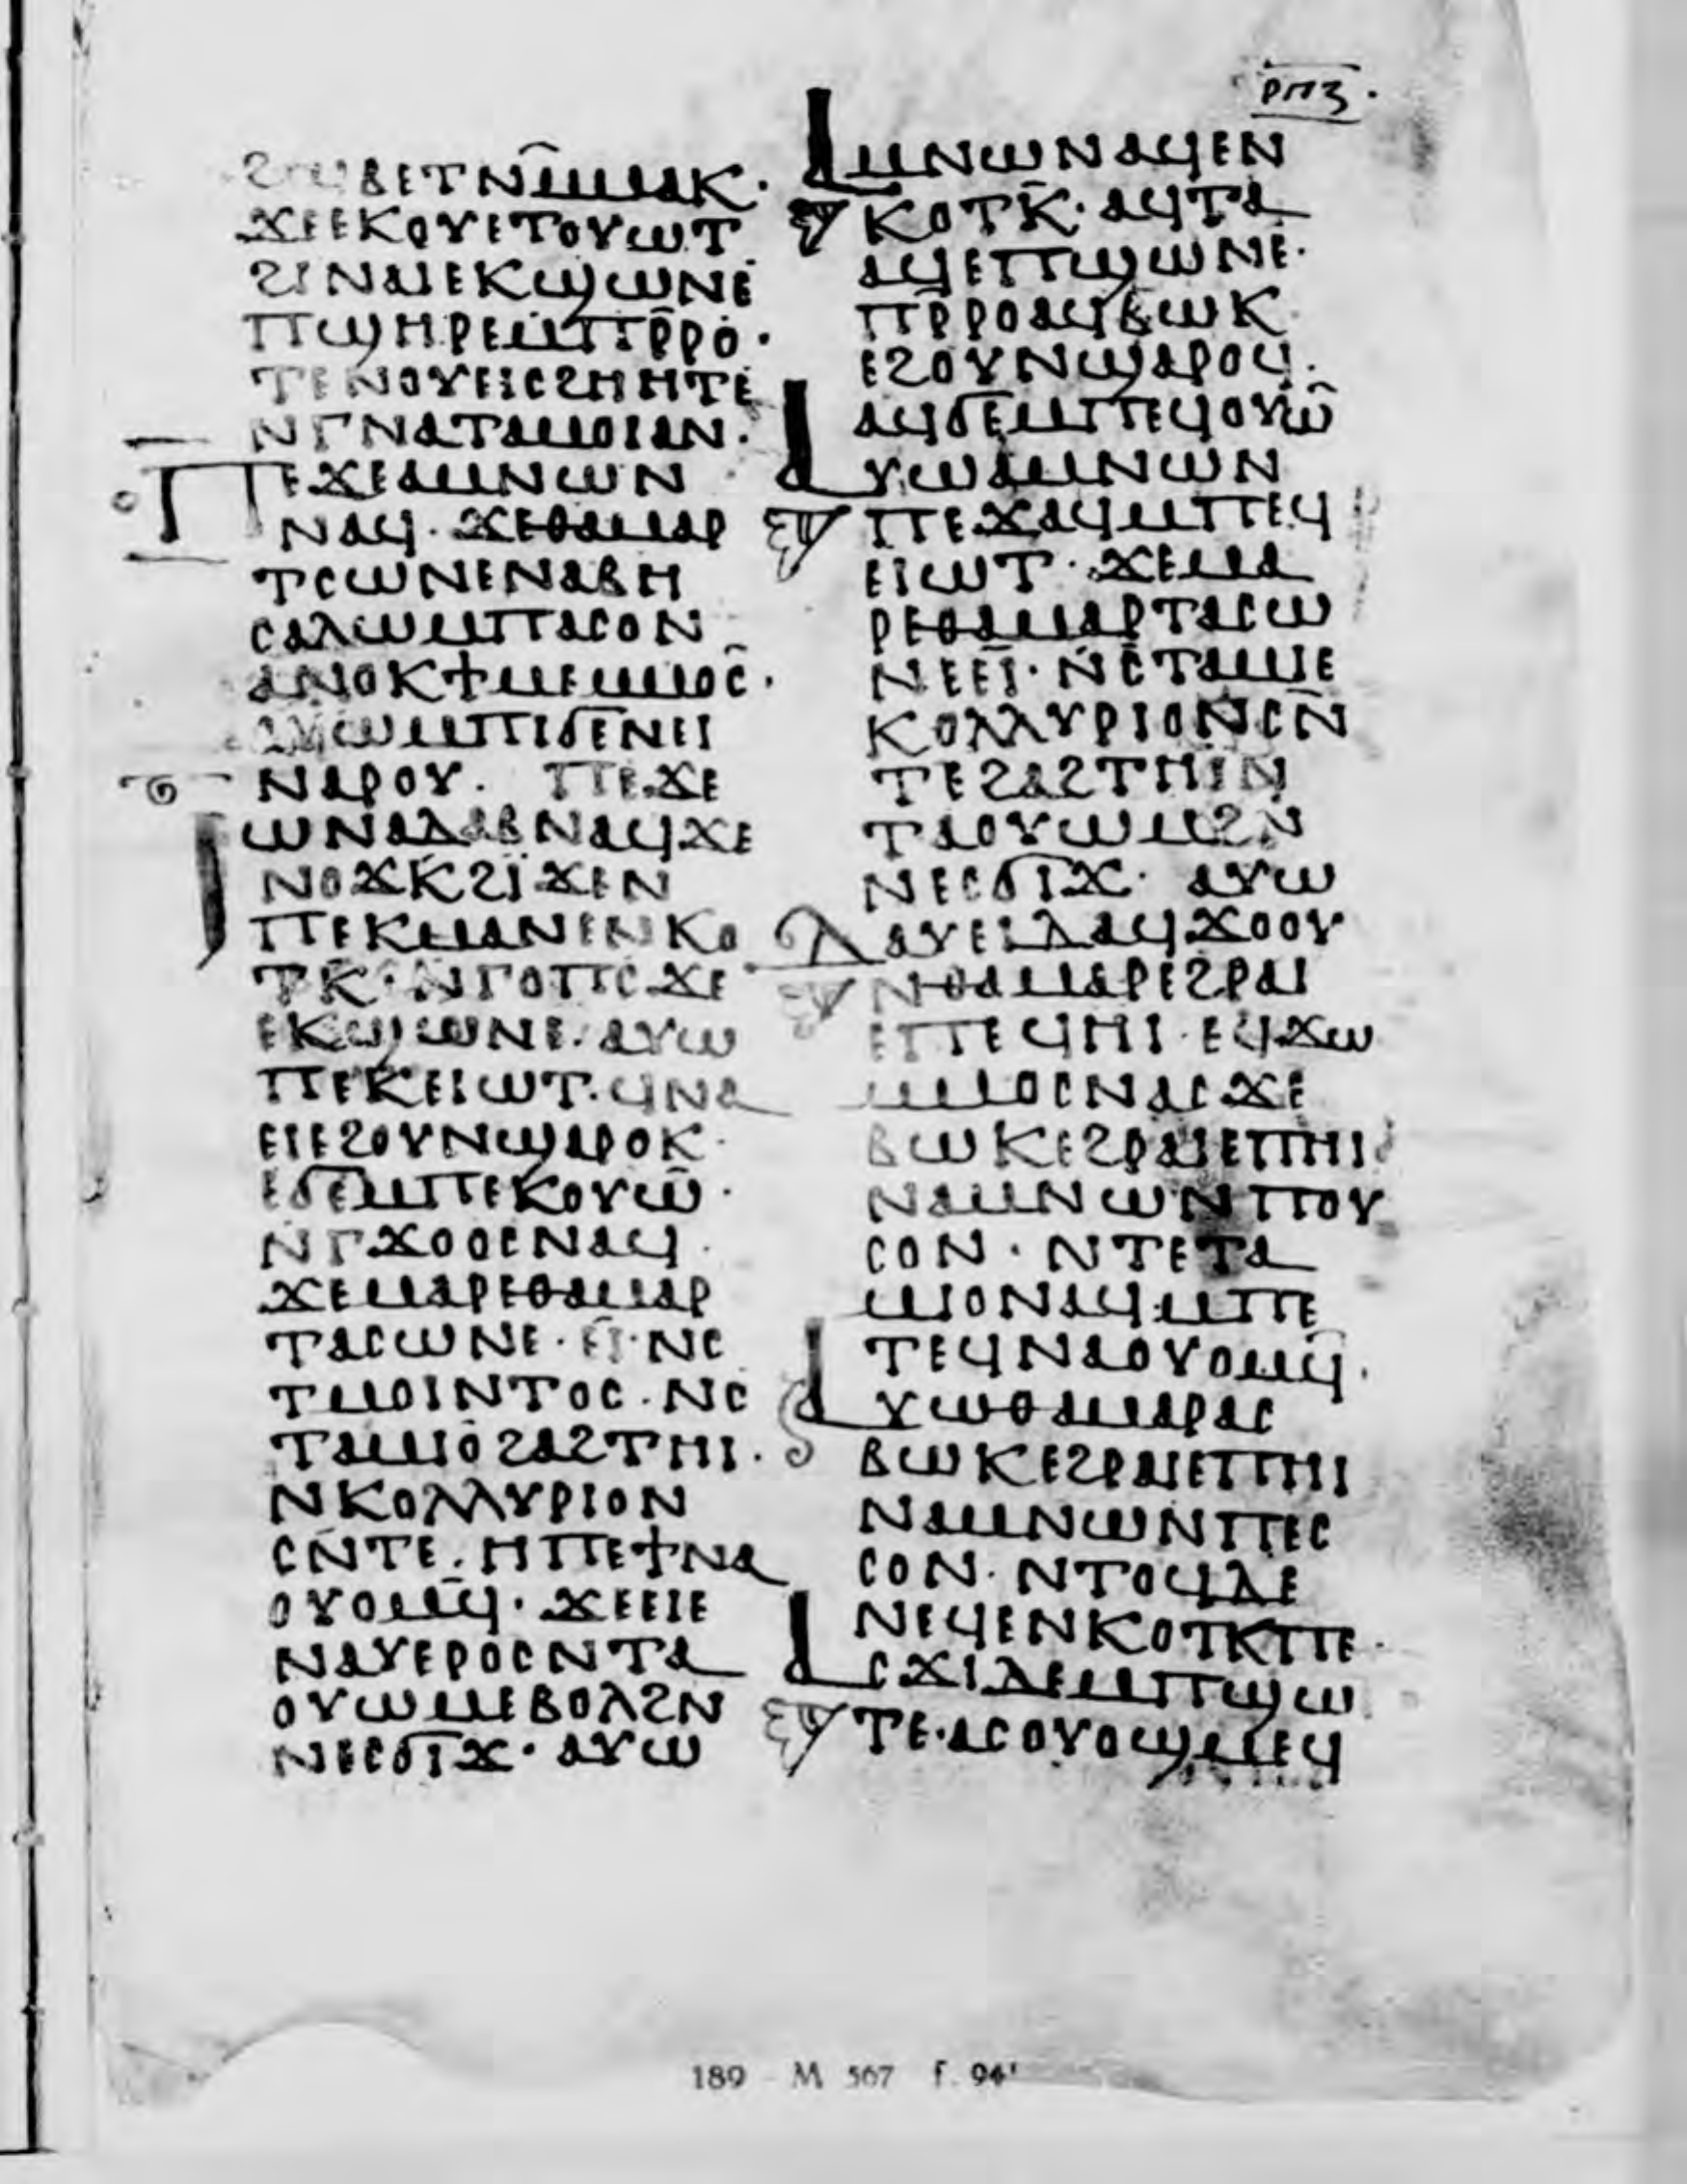 ⲣⲡⲍ
ϩⲱⲃ ⲉⲧⲛⲙ̅ⲙⲁⲕ·
ϫⲉⲉⲕⲟⲩⲉⲧⲟⲩⲱⲧ
ϩⲓⲛⲁⲓⲉⲕϣⲱⲛⲉ
ⲡϣⲏⲣⲉⲙⲡⲣ̅ⲣⲟ·
ⲧⲉⲛⲟⲩⲉⲓⲥϩⲏⲏⲧⲉ
ⲛⲅⲛⲁⲧⲁⲙⲟⲓⲁⲛ·
ⲡⲉϫⲉⲁⲙⲛⲱⲛ
ⲛⲁϥ·ϫⲉⲑⲁⲙⲁⲣ
ⲧⲥⲱⲛⲉⲛⲁⲃⲏ
ⲥⲁⲗⲱⲙⲡⲁⲥⲟⲛ
ⲁⲛⲟⲕϯⲙⲉⲙⲙⲟⲥ̅·
ⲁⲩⲱⲙⲡⲓϭⲉⲛⲉⲓ
ⲛⲁⲣⲟⲩ· ⲡⲉϫⲉ
ⲓⲱⲛⲁⲇⲁⲃⲛⲁϥϫⲉ
ⲛⲟϫⲕϩⲓϫⲉⲛ
ⲡⲉⲕⲙⲁⲛⲉⲛⲕⲟ
ⲧⲕ̅·ⲛⲅⲟⲡⲥϫⲉ
ⲉⲕϣⲱⲛⲉ·ⲁⲩⲱ
ⲡⲉⲕⲉⲓⲱⲧ·ϥⲛⲁ
ⲉⲓⲉϩⲟⲩⲛϣⲁⲣⲟⲕ·
ⲉϭⲉⲙⲡⲉⲕⲟⲩⲱ̅·
ⲛⲅϫⲟⲟⲥⲛⲁϥ·
ϫⲉⲙⲁⲣⲉⲑⲁⲙⲁⲣ
ⲧⲁⲥⲱⲛⲉ·ⲉⲓ·ⲛⲥ
ⲧⲙⲟⲓⲛⲧⲟⲥ·ⲛⲥ
ⲧⲁⲙⲓⲟϩⲁϩⲧⲏⲓ·
ⲛⲕⲟⲗⲗⲩⲣⲓⲟⲛ
ⲥⲛⲧⲉ·ⲏⲡⲉϯⲛⲁ
ⲟⲩⲟⲙϥ̅·ϫⲉⲉⲓⲉ
ⲛⲁⲩⲉⲣⲟⲥⲛⲧⲁ
ⲟⲩⲱⲙⲉⲃⲟⲗϩⲛ
ⲛⲉⲥϭⲓϫ·ⲁⲩⲱ
ⲁⲙⲛⲱⲛⲁϥⲉⲛ
ⲕⲟⲧⲕ̅·ⲁϥⲧⲁ
ⲁϥⲉⲡϣⲱⲛⲉ·
ⲡⲣ̅ⲣⲟⲁϥⲃⲱⲕ
ⲉϩⲟⲩⲛϣⲁⲣⲟϥ·
ⲁϥϭⲉⲙⲡⲉϥⲟⲩⲱ̅
ⲁⲩⲱⲁⲙⲛⲱⲛ
ⲡⲉϫⲁϥⲙⲡⲉϥ
ⲉⲓⲱⲧ·ϫⲉⲙⲁ
ⲣⲉⲑⲁⲙⲁⲣⲧⲁⲥⲱ
ⲛⲉⲉⲓ·ⲛⲥⲧⲁⲙⲓⲉ
ⲕⲟⲗⲗⲩⲣⲓⲟⲛⲥⲛ̅
ⲧⲉϩⲁϩⲧⲏⲓⲛ
ⲧⲁⲟⲩⲱⲙϩⲛ
ⲛⲉⲥϭⲓϫ· ⲁⲩⲱ
ⲇⲁⲩⲉⲓⲇⲁϥϫⲟⲟⲩ
ⲛⲑⲁⲙⲁⲣⲉϩⲣⲁⲓ
ⲉⲡⲉϥⲏⲓ·ⲉϥϫⲱ
ⲙⲙⲟⲥⲛⲁⲥϫⲉ
ⲃⲱⲕⲉϩⲣⲁⲓⲉⲡⲏⲓ
ⲛⲁⲙⲛⲱⲛⲡⲟⲩ
ⲥⲟⲛ·ⲛⲧⲉⲧⲁ
ⲙⲓⲟⲛⲁϥⲙⲡⲉ
ⲧⲉϥⲛⲁⲟⲩⲟⲙϥ̅·
ⲁⲩⲱⲑⲁⲙⲁⲣⲁⲥ
ⲃⲱⲕⲉϩⲣⲁⲓⲉⲡⲏⲓ
ⲛⲁⲙⲛⲱⲛⲡⲉⲥ
ⲥⲟⲛ·ⲛⲧⲟϥⲇⲉ
ⲛⲉϥⲉⲛⲕⲟⲧⲕⲡⲉ·
ⲁⲥϫⲓⲇⲉⲙⲡϣⲱ
ⲧⲉ·ⲁⲥⲟⲩⲟϣⲙⲉϥ
189 M 567 f. 94ʳ